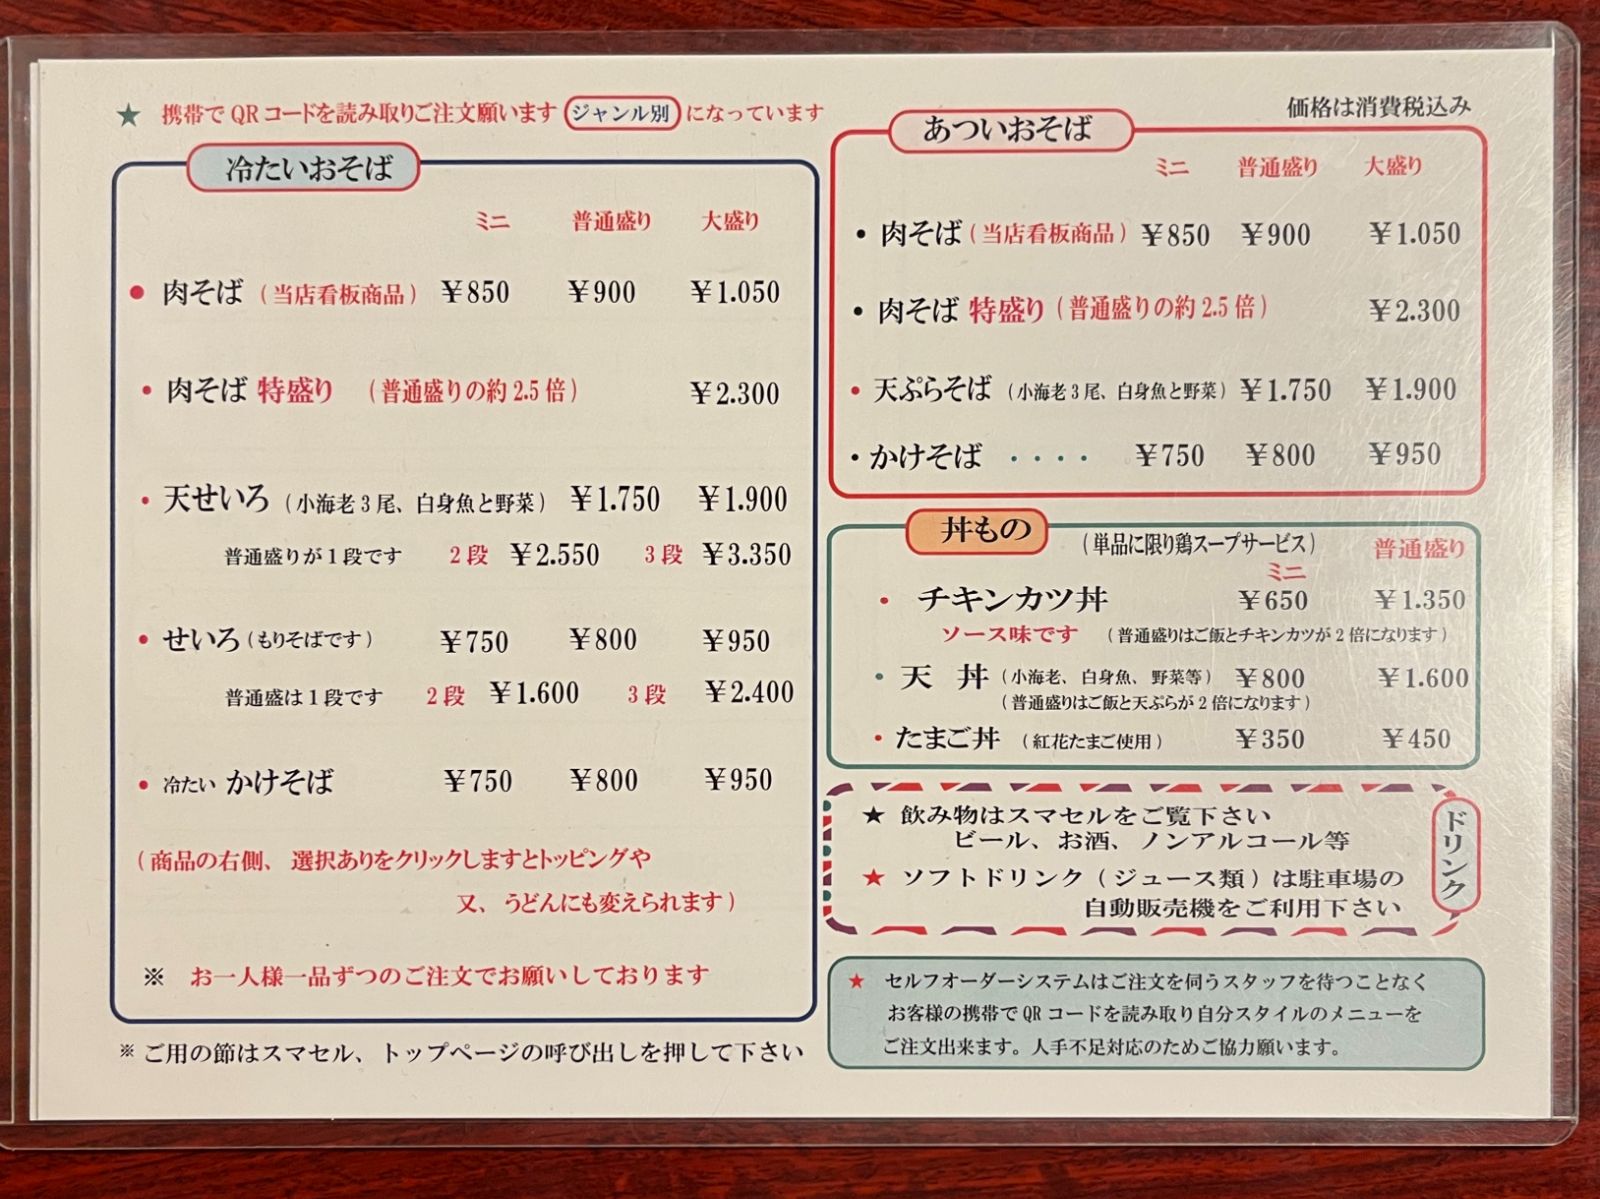 ★ 携帯でQRコードを読み取りご注文願います ジャンル別 になっています
冷たいおそば
ミニ 普通盛り 大盛り
● 肉そば (当店看板商品) ¥850 ¥900 ¥1.050
・肉そば 特盛り (普通盛りの約2.5倍) ¥2.300
・天せいろ (小海老3尾、白身魚と野菜) ¥1.750 ¥1.900
普通盛りが1段です 2段 ¥2.550 3段 ¥3.350
・せいろ (もりそばです) ¥750 ¥800 ¥950
普通盛は1段です 2段 ¥1.600 3段 ¥2.400
・冷たい かけそば ¥750 ¥800 ¥950
(商品の右側、選択ありをクリックしますとトッピングや
又、うどんにも変えられます)
※ お一人様一品ずつのご注文でお願いしております
※ ご用の節はスマセル、トップページの呼び出しを押して下さい
価格は消費税込み
あついおそば
ミニ 普通盛り 大盛り
・肉そば (当店看板商品) ¥850 ¥900 ¥1.050
・肉そば 特盛り (普通盛りの約2.5倍) ¥2.300
・天ぷらそば (小海老3尾、白身魚と野菜) ¥1.750 ¥1.900
・かけそば ・・・・ ¥750 ¥800 ¥950
丼もの
(単品に限り鶏スープサービス) 普通盛り
ミニ
・チキンカツ丼 ¥650 ¥1.350
ソース味です (普通盛りはご飯とチキンカツが2倍になります)
・天 丼 (小海老、白身魚、野菜等) ¥800 ¥1.600
(普通盛りはご飯と天ぷらが2倍になります)
・たまご丼 (紅花たまご使用) ¥350 ¥450
ドリンク
★ 飲み物はスマセルをご覧下さい
ビール、お酒、ノンアルコール等
★ ソフトドリンク (ジュース類) は駐車場の
自動販売機をご利用下さい
★ セルフオーダーシステムはご注文を伺うスタッフを待つことなく
お客様の携帯でQRコードを読み取り自分スタイルのメニューを
ご注文出来ます。人手不足対応のためご協力願います。